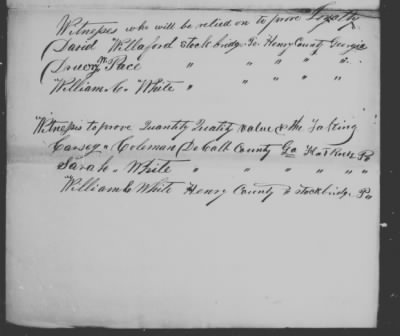 Witnesses who will be relied on to prove Loyalty
David Willaford Stockbridge Po. Henry County Georgia
Drury M Pace " " " " "
William C. White " " " " "
Witnesses to prove Quantity Quality value & the Taking
Cassey Coleman DeKalb County Ga Flat Rock Po
Sarah White " " " " "
William C White Henry County Stockbridge Po